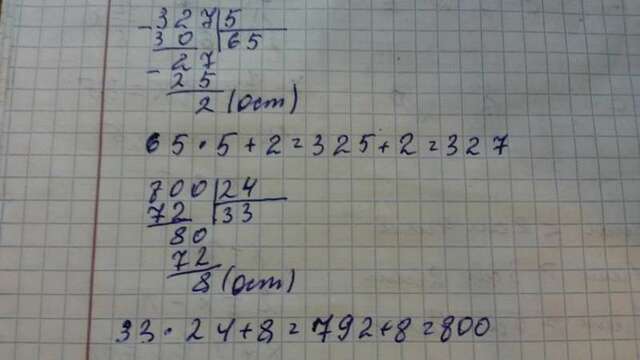 - 327 | 5
30 | 65
- 27
25
2 (ост)
65 · 5 + 2 = 325 + 2 = 327
700 | 24
72 | 33
80
72
8 (ост)
33 · 24 + 8 = 792 + 8 = 800